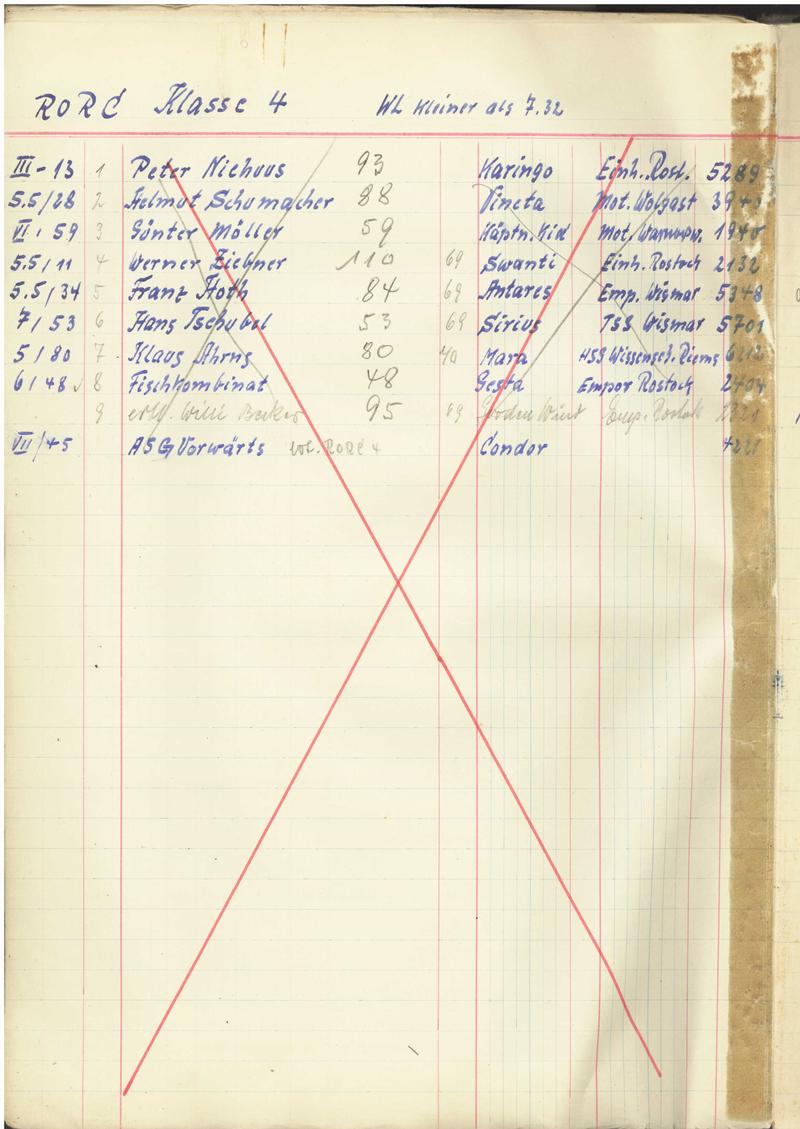 RORC Klasse 4 WL kleiner als 7.32
III - 13 1 Peter Niehuus 93 Karingo Einh. Rost. 5289
5.5/28 2 Helmut Schumacher 88 Vineta Mot. Wolgast
VI / 59 3 Günter Möller 59 Käptn. Kid Mot.
5.5/11 4 Werner 110 69 Swanti Einh. Rostock 2132
5.5/34 5 Franz Hoth 84 69 Antares Emp. Wismar 5348
7/53 6 Hans Tschubel 53 69 Sirius TSG Wismar 5701
5/80 7 Klaus Ahrns 80 70 Mara HSG Wissensch.
6/48 8 Fischkombinat 48 Gesta Empor Rostock
9 Willi Becker 95 69 Emp. Rostock
VII/45 ASG Vorwärts RORC 4 Condor